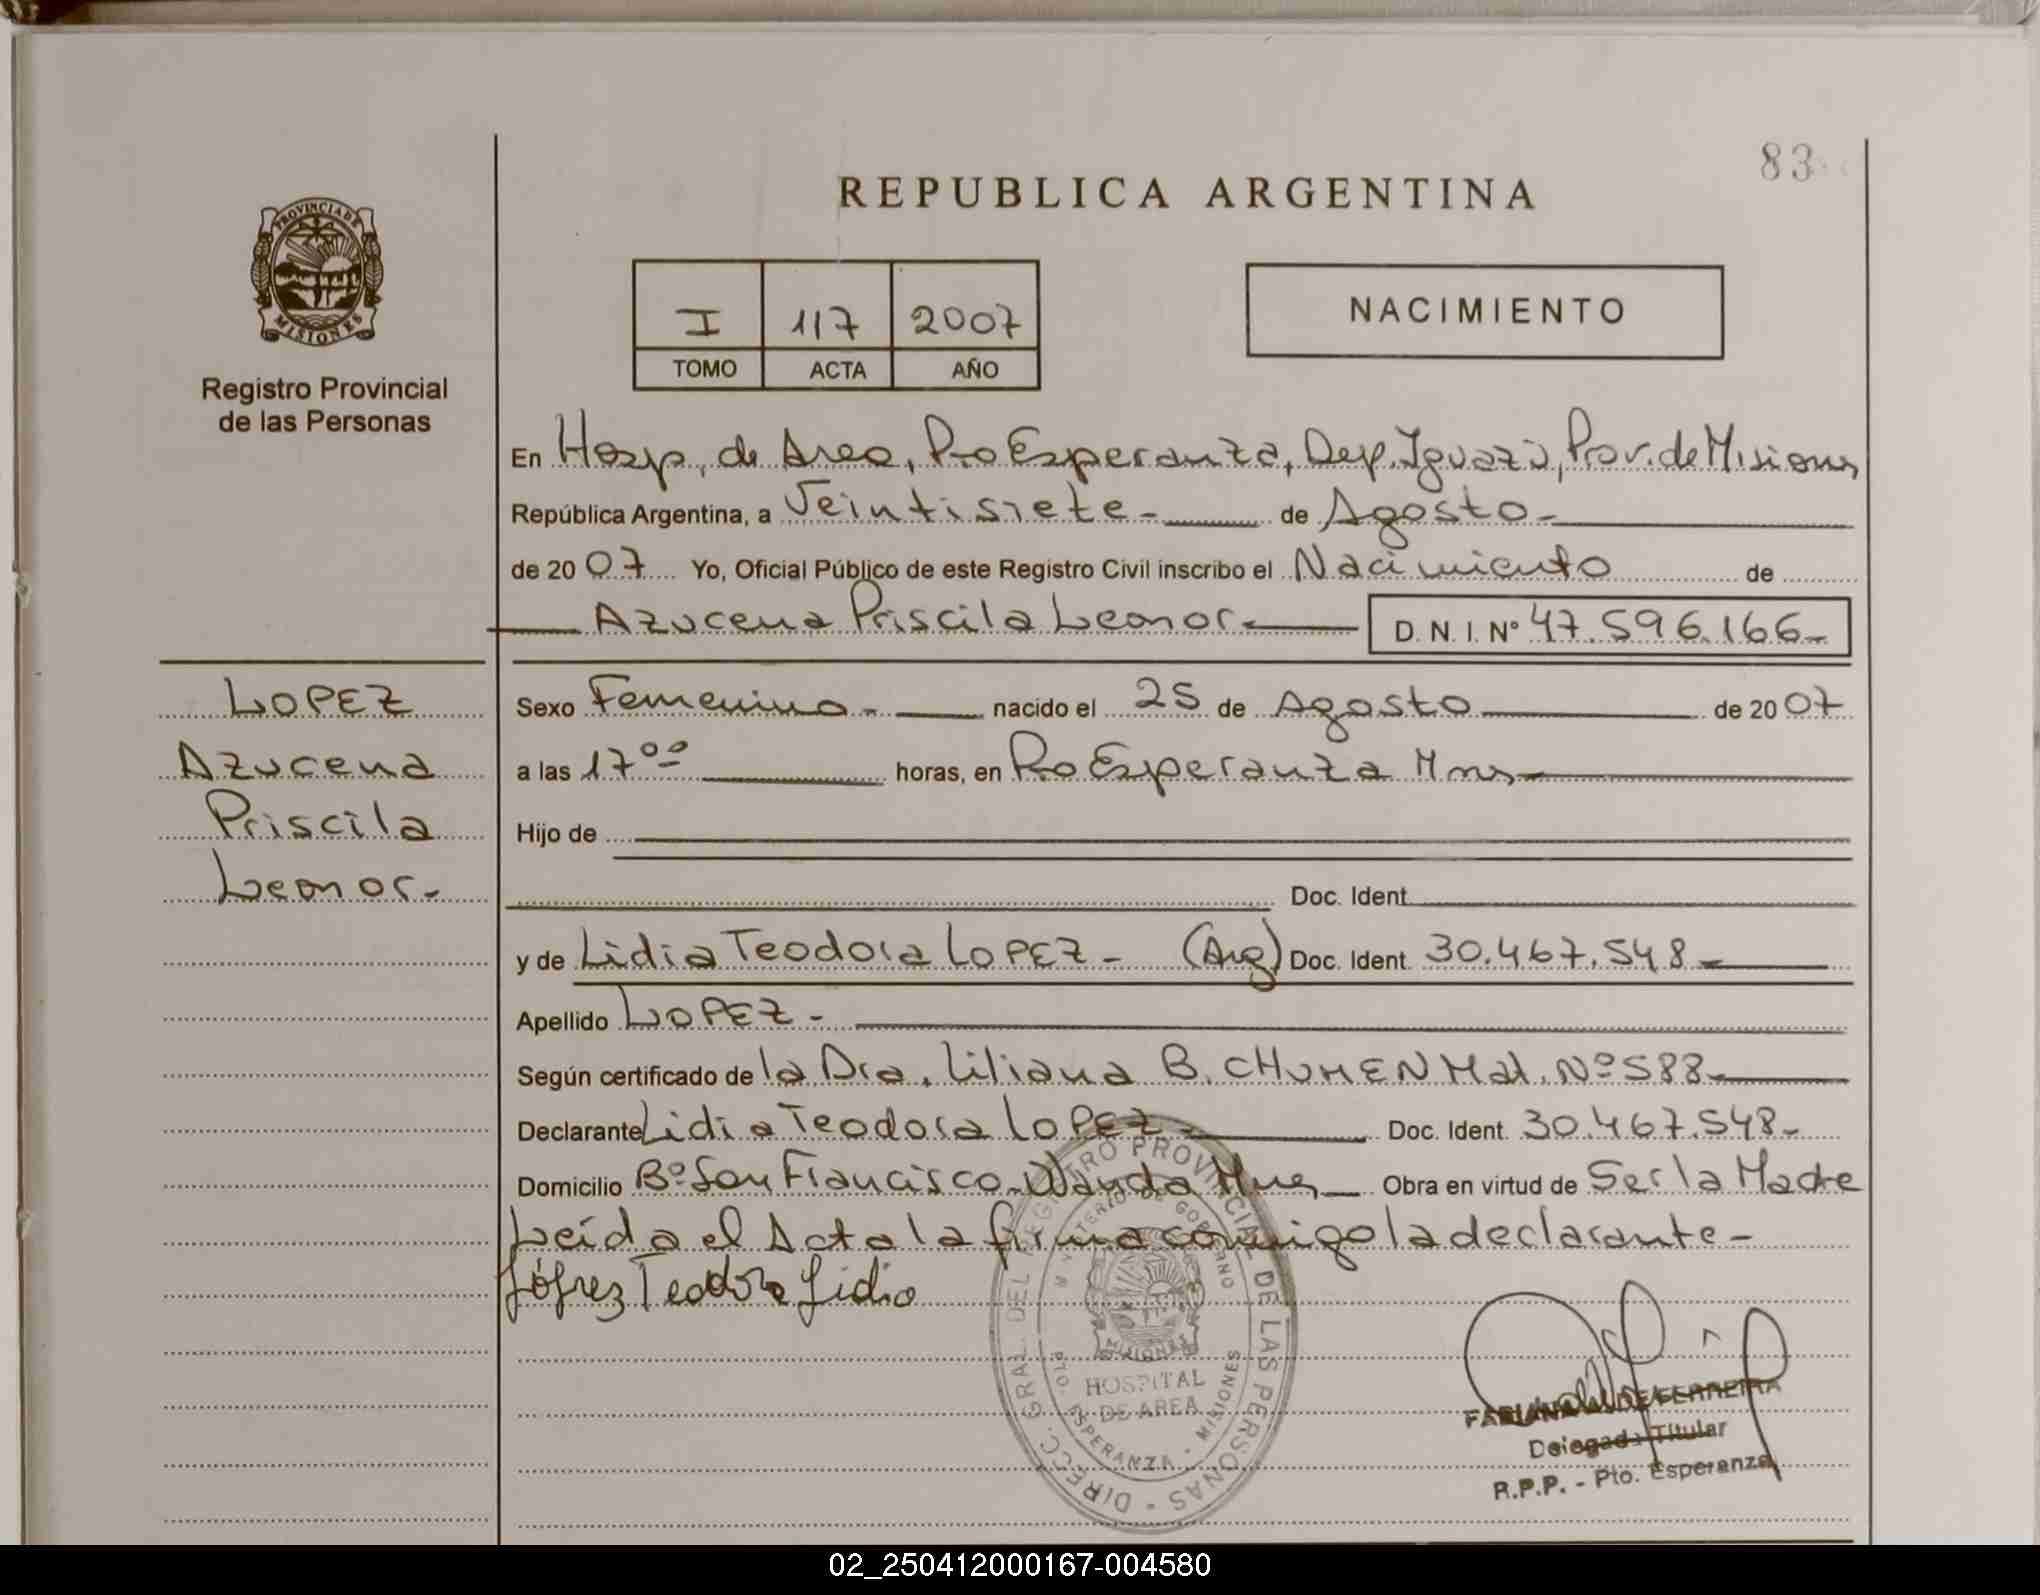 83
REPUBLICA ARGENTINA
PROVINCIA DE
MISIONES
Registro Provincial
de las Personas
I 117 2007
TOMO ACTA AÑO
NACIMIENTO
En Hosp. de Area, Pto Esperanza, Dep. Iguazú, Prov. de Misiones
República Argentina, a Veintisiete - de Agosto -
de 20 07 Yo, Oficial Público de este Registro Civil inscribo el Nacimiento de
Azucena Priscila Leonor - D. N. I. Nº 47.596.166-
LOPEZ
Azucena
Priscila
Leonor-
Sexo Femenino - nacido el 25 de Agosto de 20 07
a las 17ºº horas, en Pto Esperanza Mnes
Hijo de
Doc. Ident.
y de Lidia Teodora LOPEZ - (Arg) Doc. Ident. 30.467.548-
Apellido LOPEZ -
Según certificado de la Dra. Liliana B. CHUMEN Mat. Nº 588-
Declarante Lidia Teodora LOPEZ - Doc. Ident. 30.467.548-
Domicilio Bº San Francisco-Wanda Mnes Obra en virtud de Ser la Madre
Leída el Acta la firma conmigo la declarante -
Teodora Lidia
DIRECC. GRAL. DEL REGISTRO PROVINCIAL DE LAS PERSONAS
MINISTERIO DE GOBIERNO
MISIONES
HOSPITAL
DE AREA
PTO. ESPERANZA - MISIONES
DE FERREIRA
Delegada Titular
R.P.P. - Pto. Esperanza
02_250412000167-004580